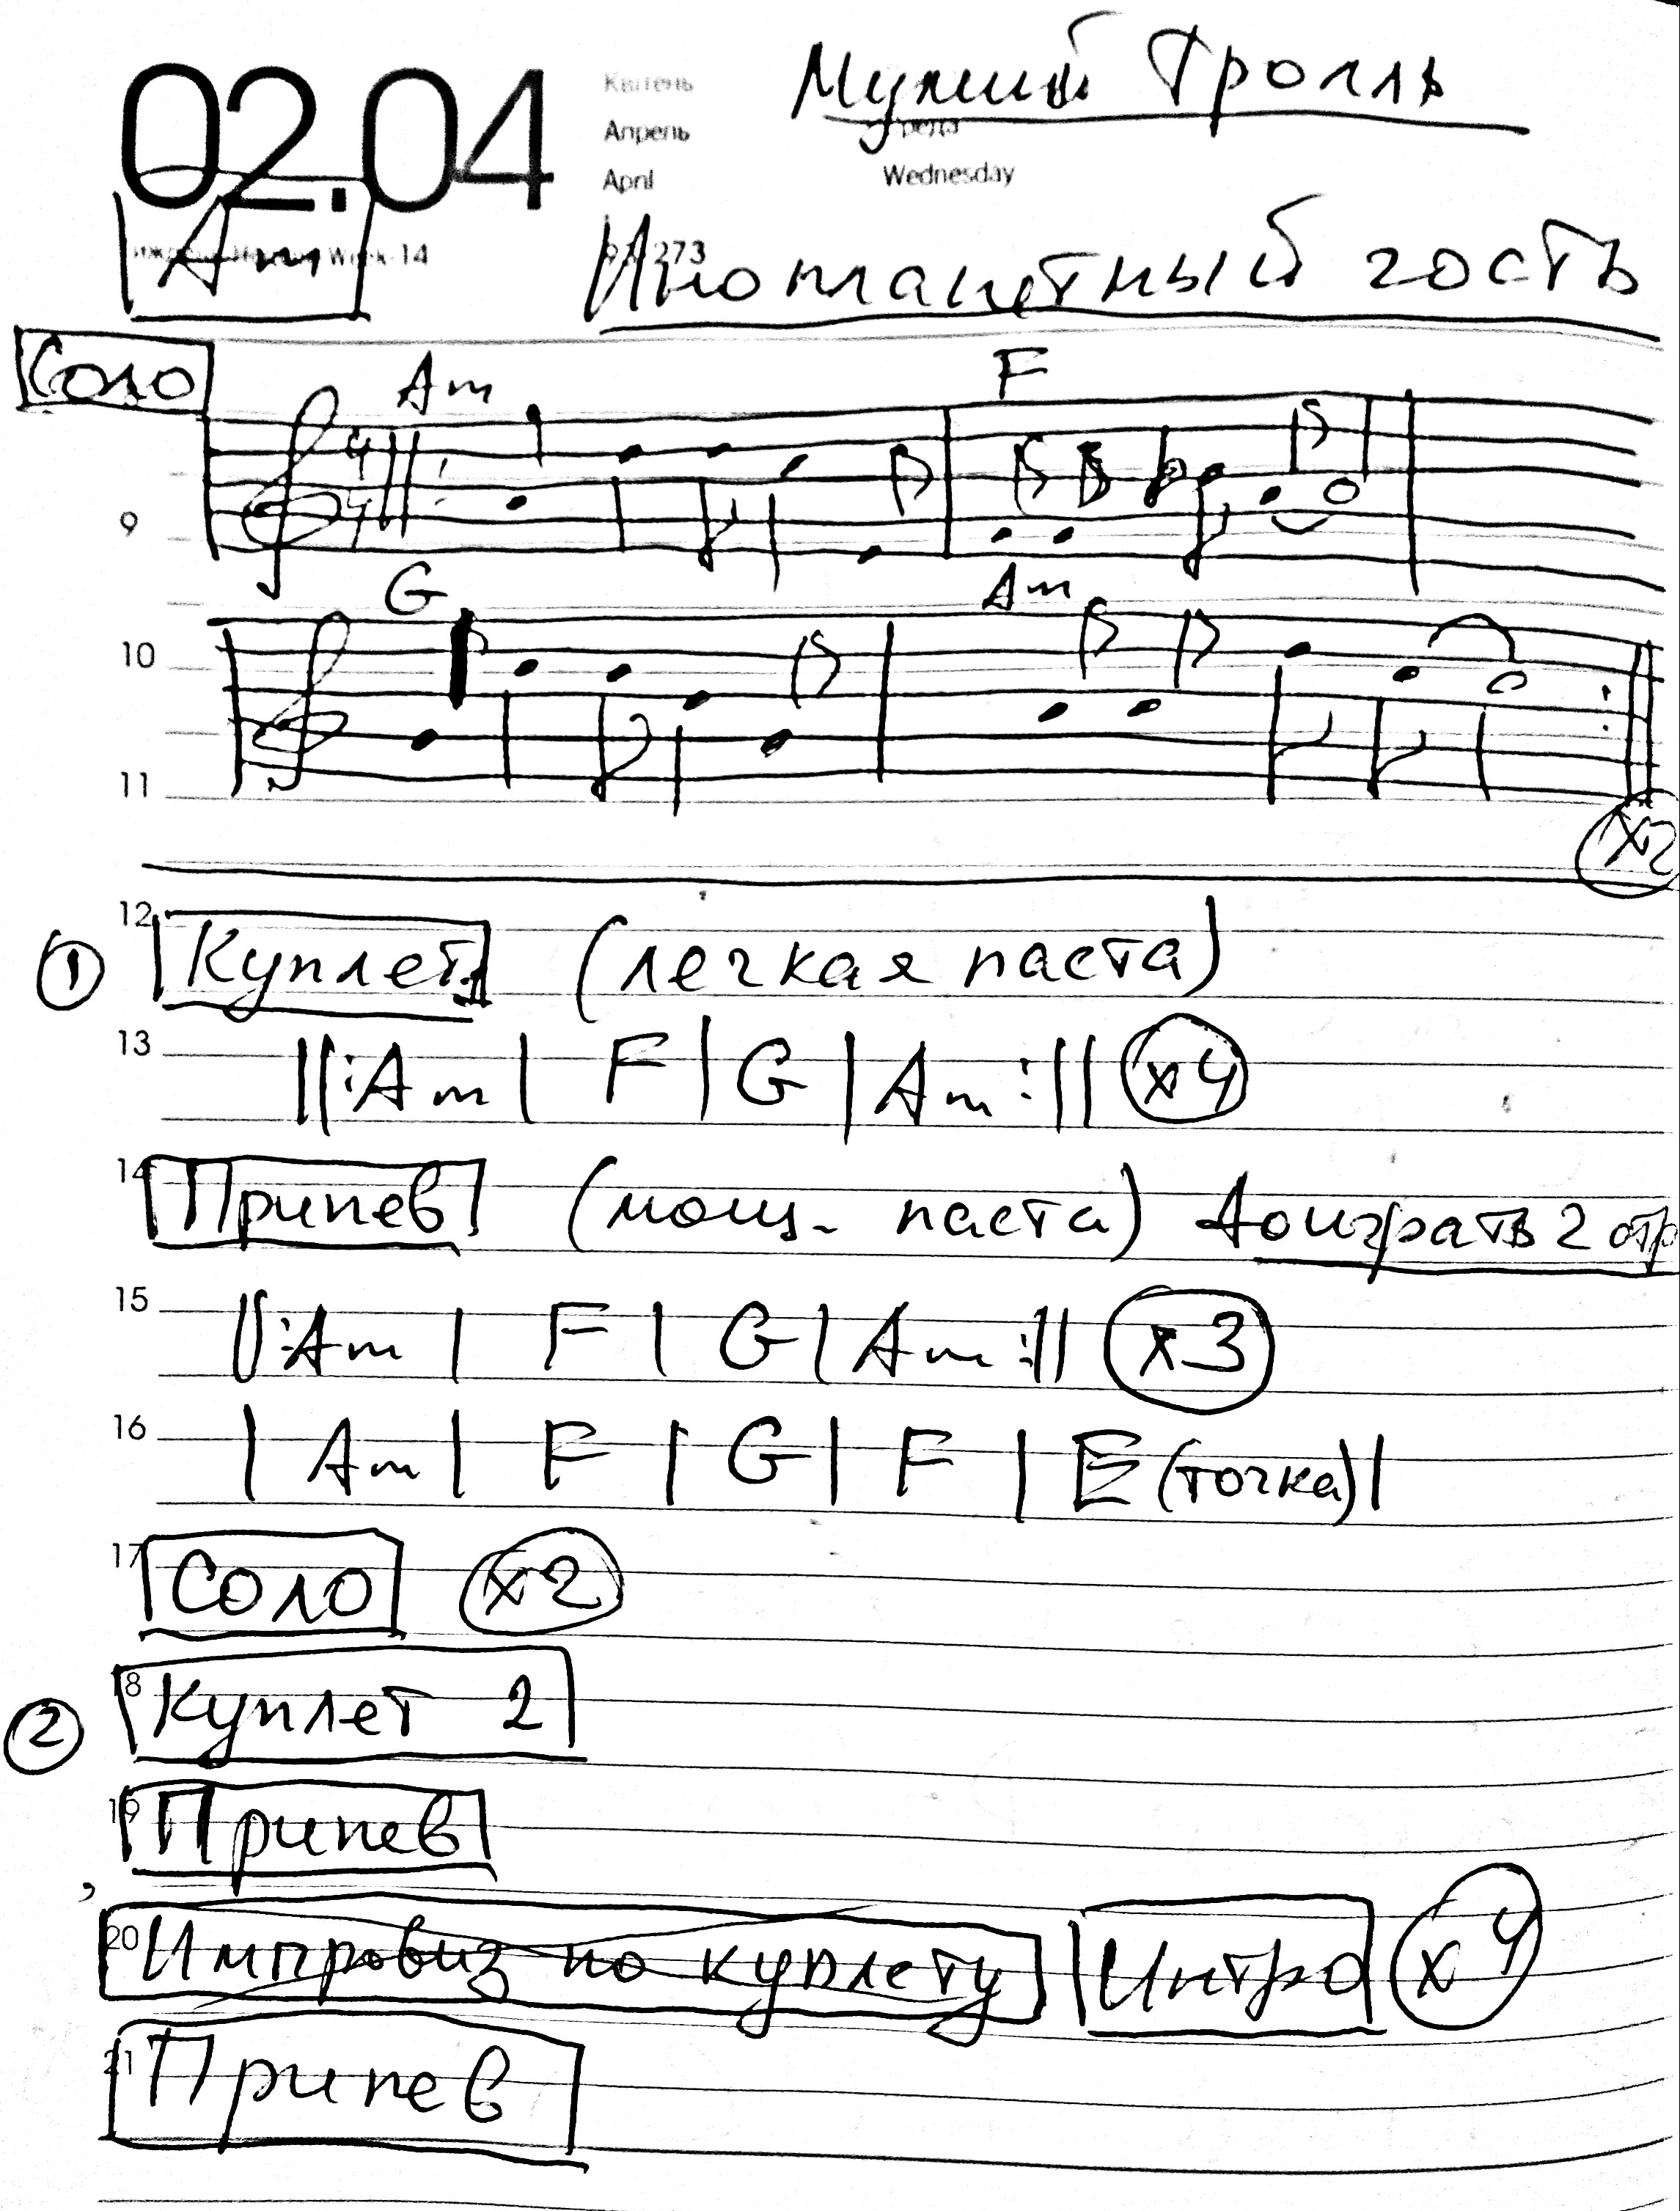 02.04
Квітень
Апрель
April
Wednesday
Мумий Тролль
Week 14
273
Am
Инопланетный гость
Соло
Am F
4
4
9
G Am
10
11
x2
12
1 Куплет 1 (легкая паста)
13
||: Am | F | G | Am :|| x4
14
Припев (мощ. паста) Доиграть 2
15
||: Am | F | G | Am :|| x3
16
| Am | F | G | F | E (точка) |
17
Соло x2
18
2 Куплет 2
19
Припев
20
Импровиз по куплету Интро x4
21
Припев